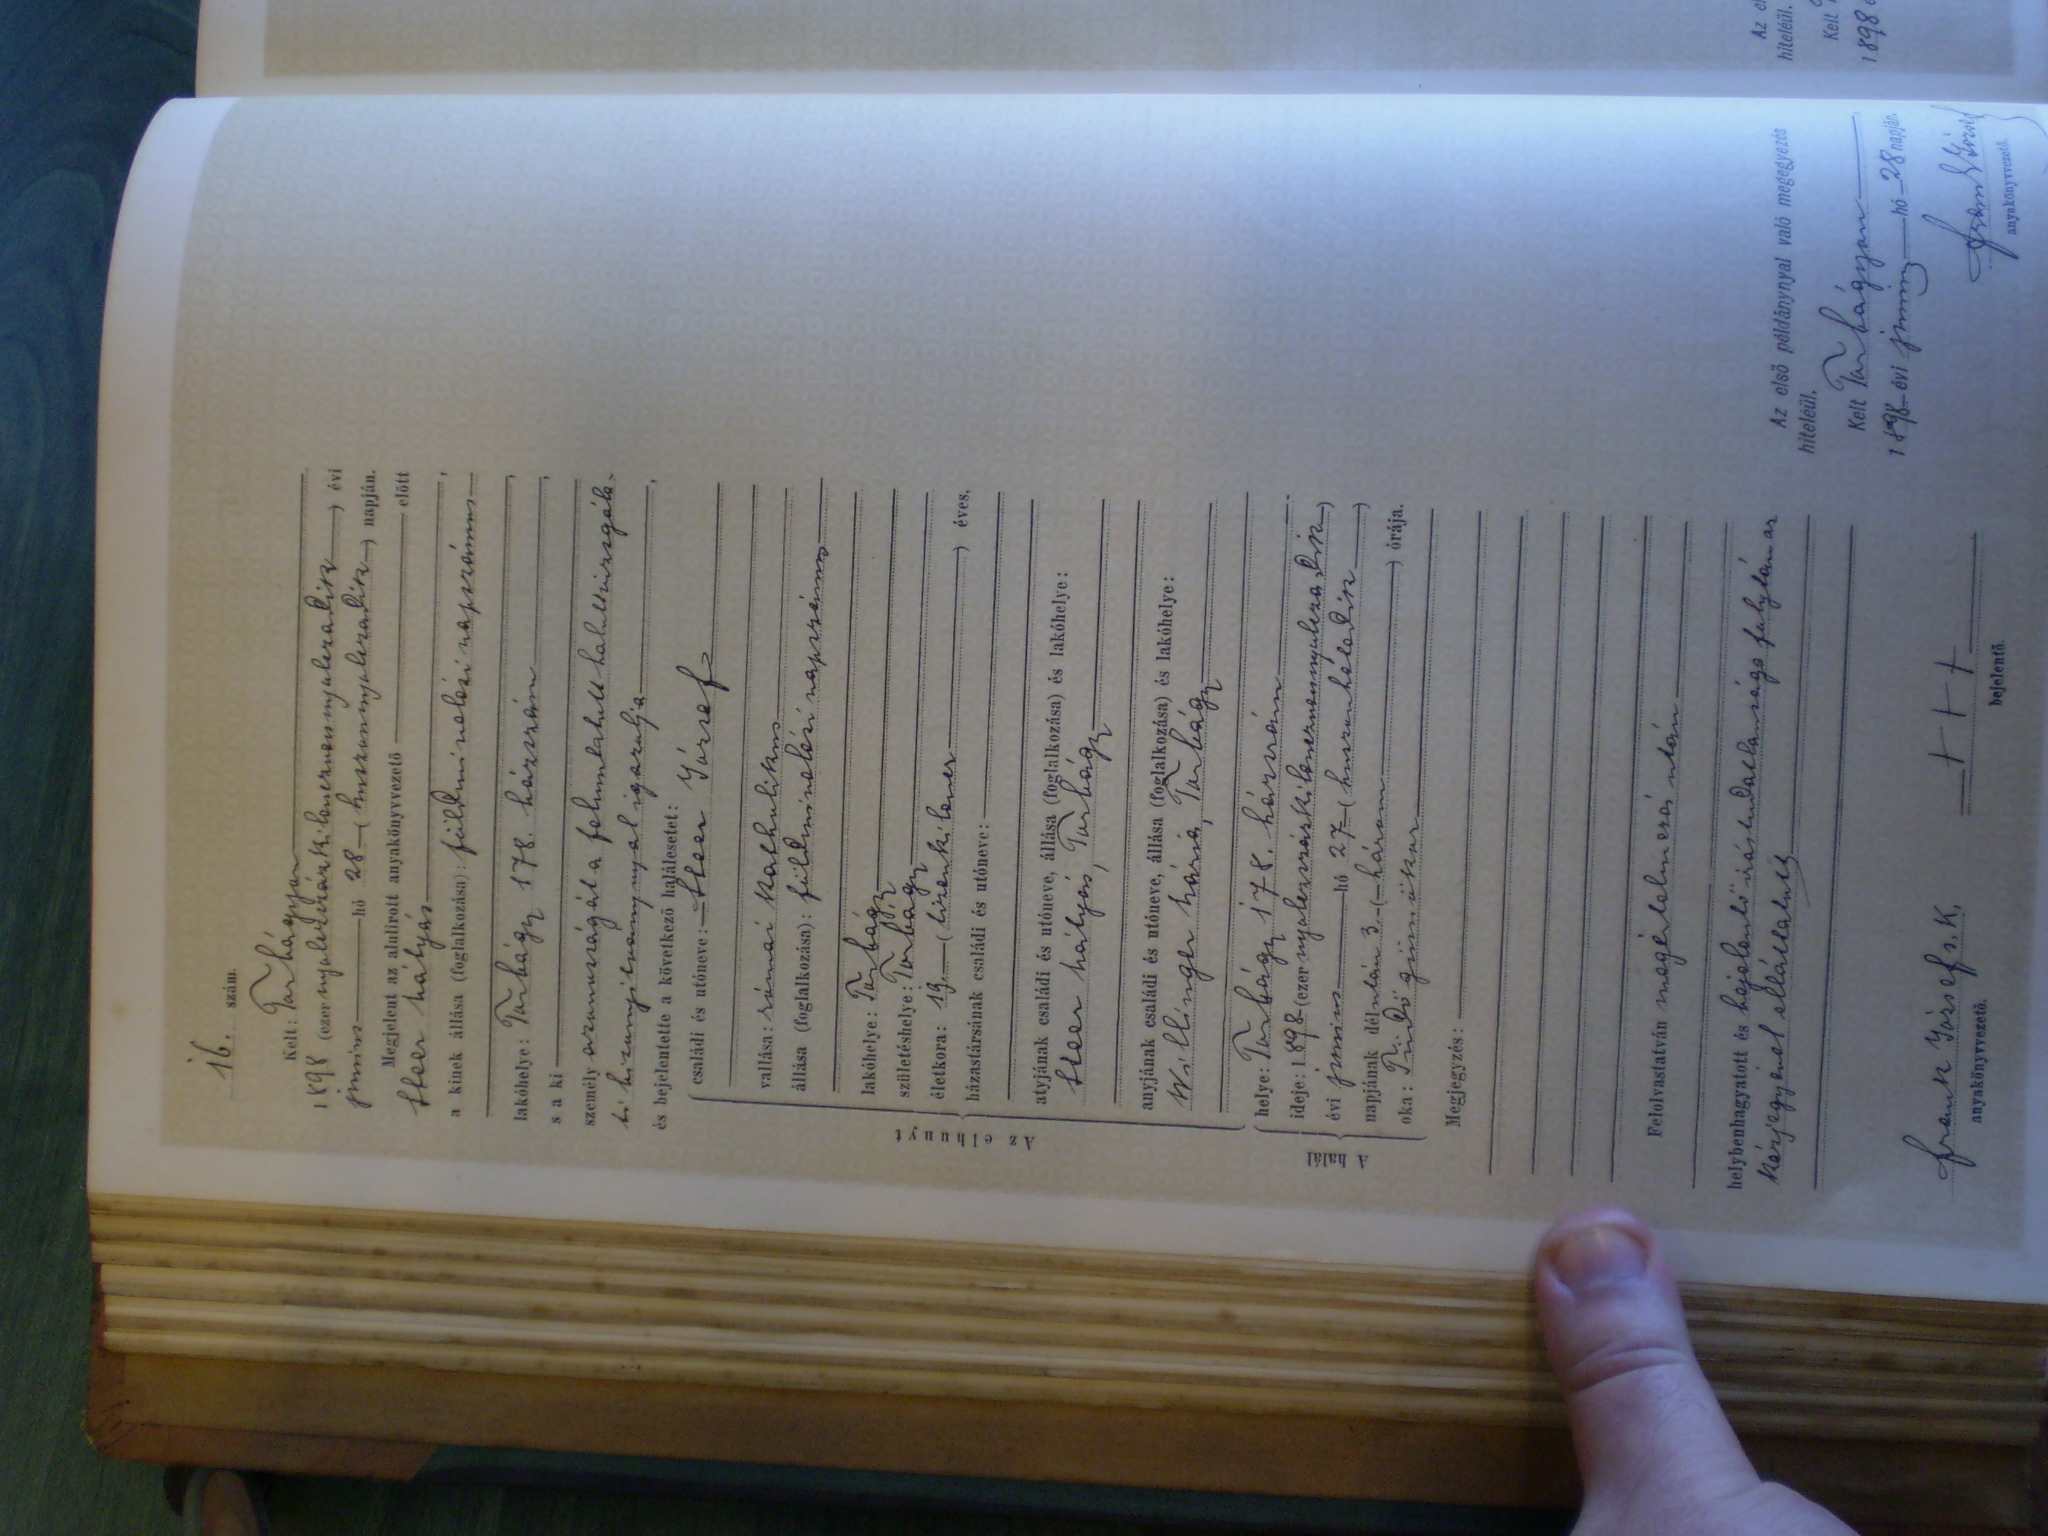 16. szám.
Kelt: Torbágyon
1898 (ezernyolcszázkilencvennyolcadik) évi
június hó 28 (huszonnyolcadik) napján.
Megjelent az alulirott anyakönyvvezető előtt
Steer Mátyás
a kinek állása (foglalkozása): földmivelési napszámos
lakóhelye: Torbágy 178. házszám
s a ki
személy azonosságát a felmutatott halottvizsgála-
ti bizonyitványnyal igazolja
és bejelentette a következő halálesetet:
Az elhunyt
családi és utóneve: Steer József
vallása: római katholikus
állása (foglalkozása): földmivelési napszámos
lakóhelye: Torbágy
születéshelye: Torbágy
életkora: 19 (tizenkilencz) éves.
házastársának családi és utóneve:
atyjának családi és utóneve, állása (foglalkozása) és lakóhelye:
Steer Mátyás, Torbágy
anyjának családi és utóneve, állása (foglalkozása) és lakóhelye:
Willinger Mária, Torbágy
A halál
helye: Torbágy 178. házszám
ideje: 1898 (ezernyolcszázkilencvennyolczadik)
évi június hó 27 (huszonhetedik)
napjának délután 3 (három) órája.
oka: Tüdőgümőkór
Megjegyzés:
Felolvastatván megértelmezés után
helybenhagyatott és bejelentő irástudatlansága folytán az
kézjegyével elláttatott
Frank József s. k.
anyakönyvvezető.
+ + +
bejelentő.
Az első példánynyal való megegyezés
hiteléül.
Kelt Torbágyon
1898 évi június hó 28 napján.
Frank József
anyakönyvvezető.
hiteléül.
Kelt
1898